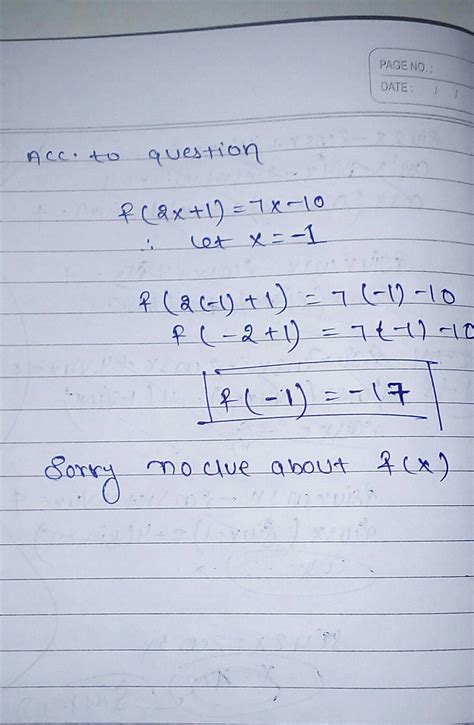 PAGE NO.:
DATE: / /
Acc. to question
f(2x+1)=7x-10
∴ let x=-1
f(2(-1)+1) = 7(-1)-10
f(-2+1) = 7(-1)-10
f(-1) = -17
Sorry no clue about f(x)